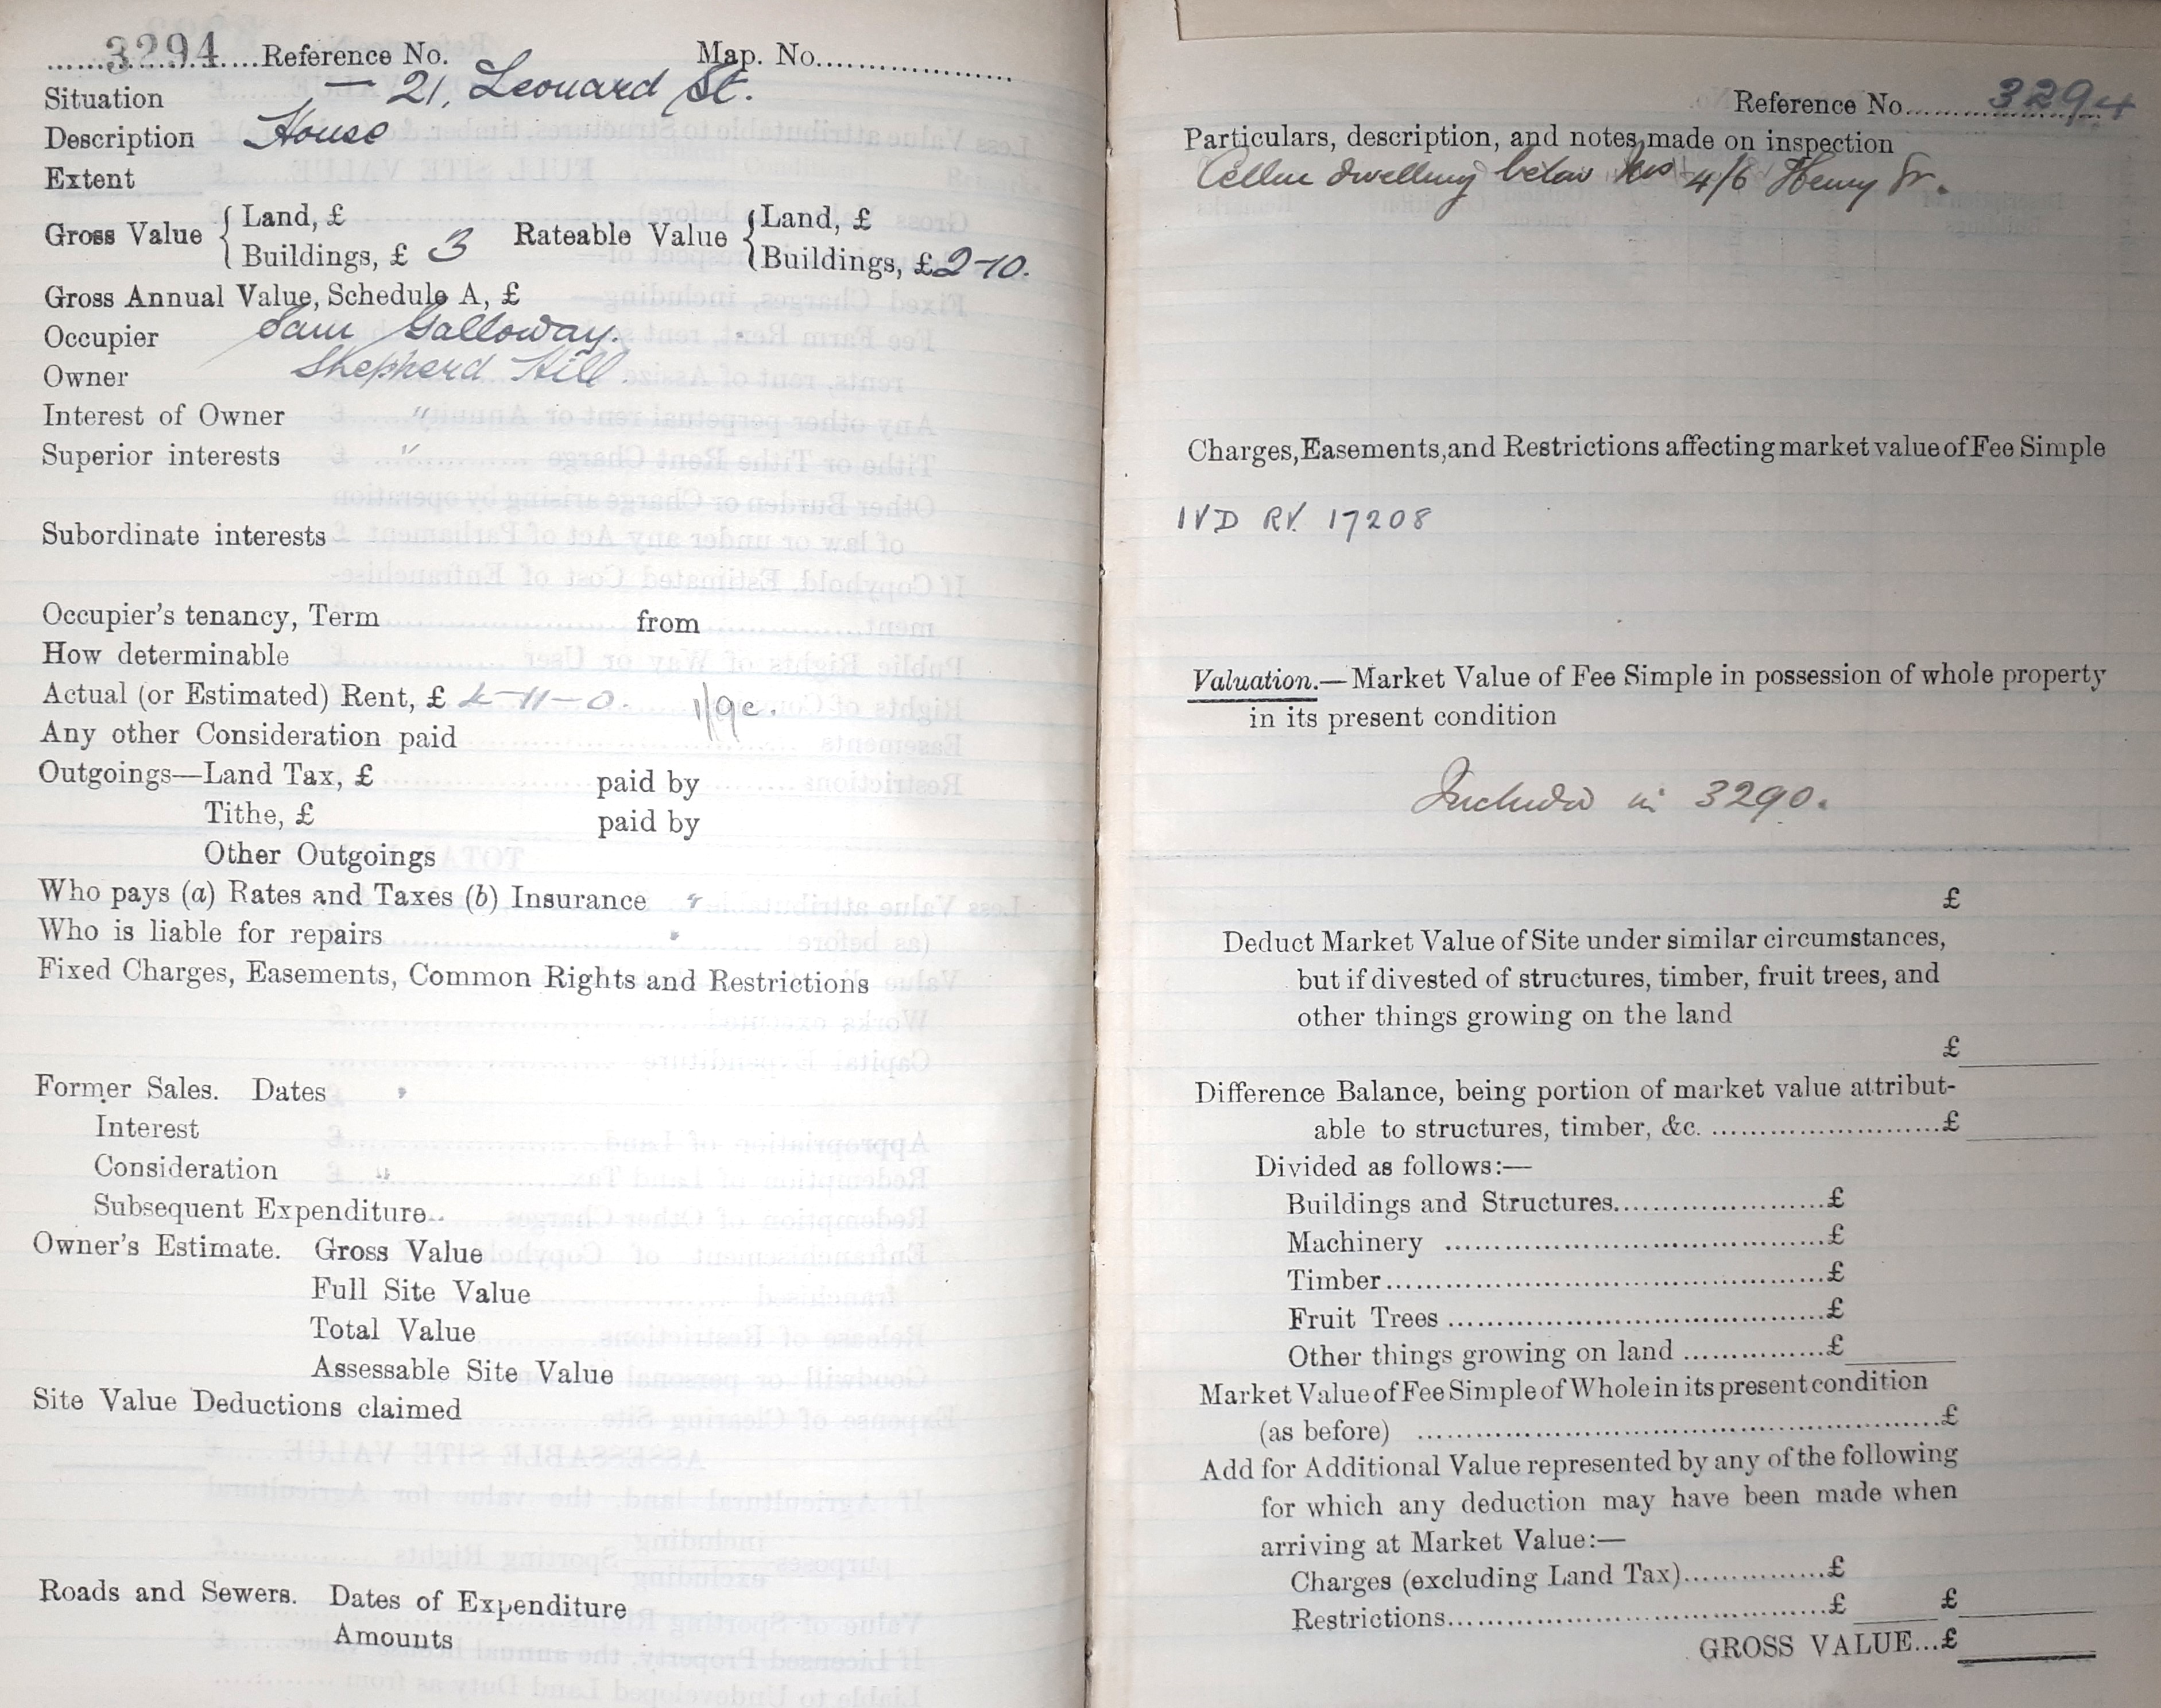 3294 Reference No. Map. No.
Situation — 21, Leonard St.
Description House
Extent
Gross Value { Land, £ Rateable Value { Land, £
Buildings, £ 3 Buildings, £ 2-10.
Gross Annual Value, Schedule A, £
Occupier Sam Galloway.
Owner Shepherd Hill.
Interest of Owner "
Superior interests "
Subordinate interests
Occupier's tenancy, Term from
How determinable
Actual (or Estimated) Rent, £ 4-11-0. 1/9
Any other Consideration paid
Outgoings—Land Tax, £ paid by
Tithe, £ paid by
Other Outgoings
Who pays (a) Rates and Taxes (b) Insurance
Who is liable for repairs
Fixed Charges, Easements, Common Rights and Restrictions
Former Sales. Dates
Interest
Consideration "
Subsequent Expenditure
Owner's Estimate. Gross Value
Full Site Value
Total Value
Assessable Site Value
Site Value Deductions claimed
Roads and Sewers. Dates of Expenditure
Amounts
Reference No. 3294
Particulars, description, and notes made on inspection
Cellar dwelling below Nos 4/6 Henry St.
Charges, Easements, and Restrictions affecting market value of Fee Simple
IVD RV. 17208
Valuation.—Market Value of Fee Simple in possession of whole property
in its present condition
Included in 3290.
£
Deduct Market Value of Site under similar circumstances,
but if divested of structures, timber, fruit trees, and
other things growing on the land
£
Difference Balance, being portion of market value attribut-
able to structures, timber, &c. £
Divided as follows:—
Buildings and Structures £
Machinery £
Timber £
Fruit Trees £
Other things growing on land £
Market Value of Fee Simple of Whole in its present condition
(as before) £
Add for Additional Value represented by any of the following
for which any deduction may have been made when
arriving at Market Value:—
Charges (excluding Land Tax) £
Restrictions £ £
GROSS VALUE... £